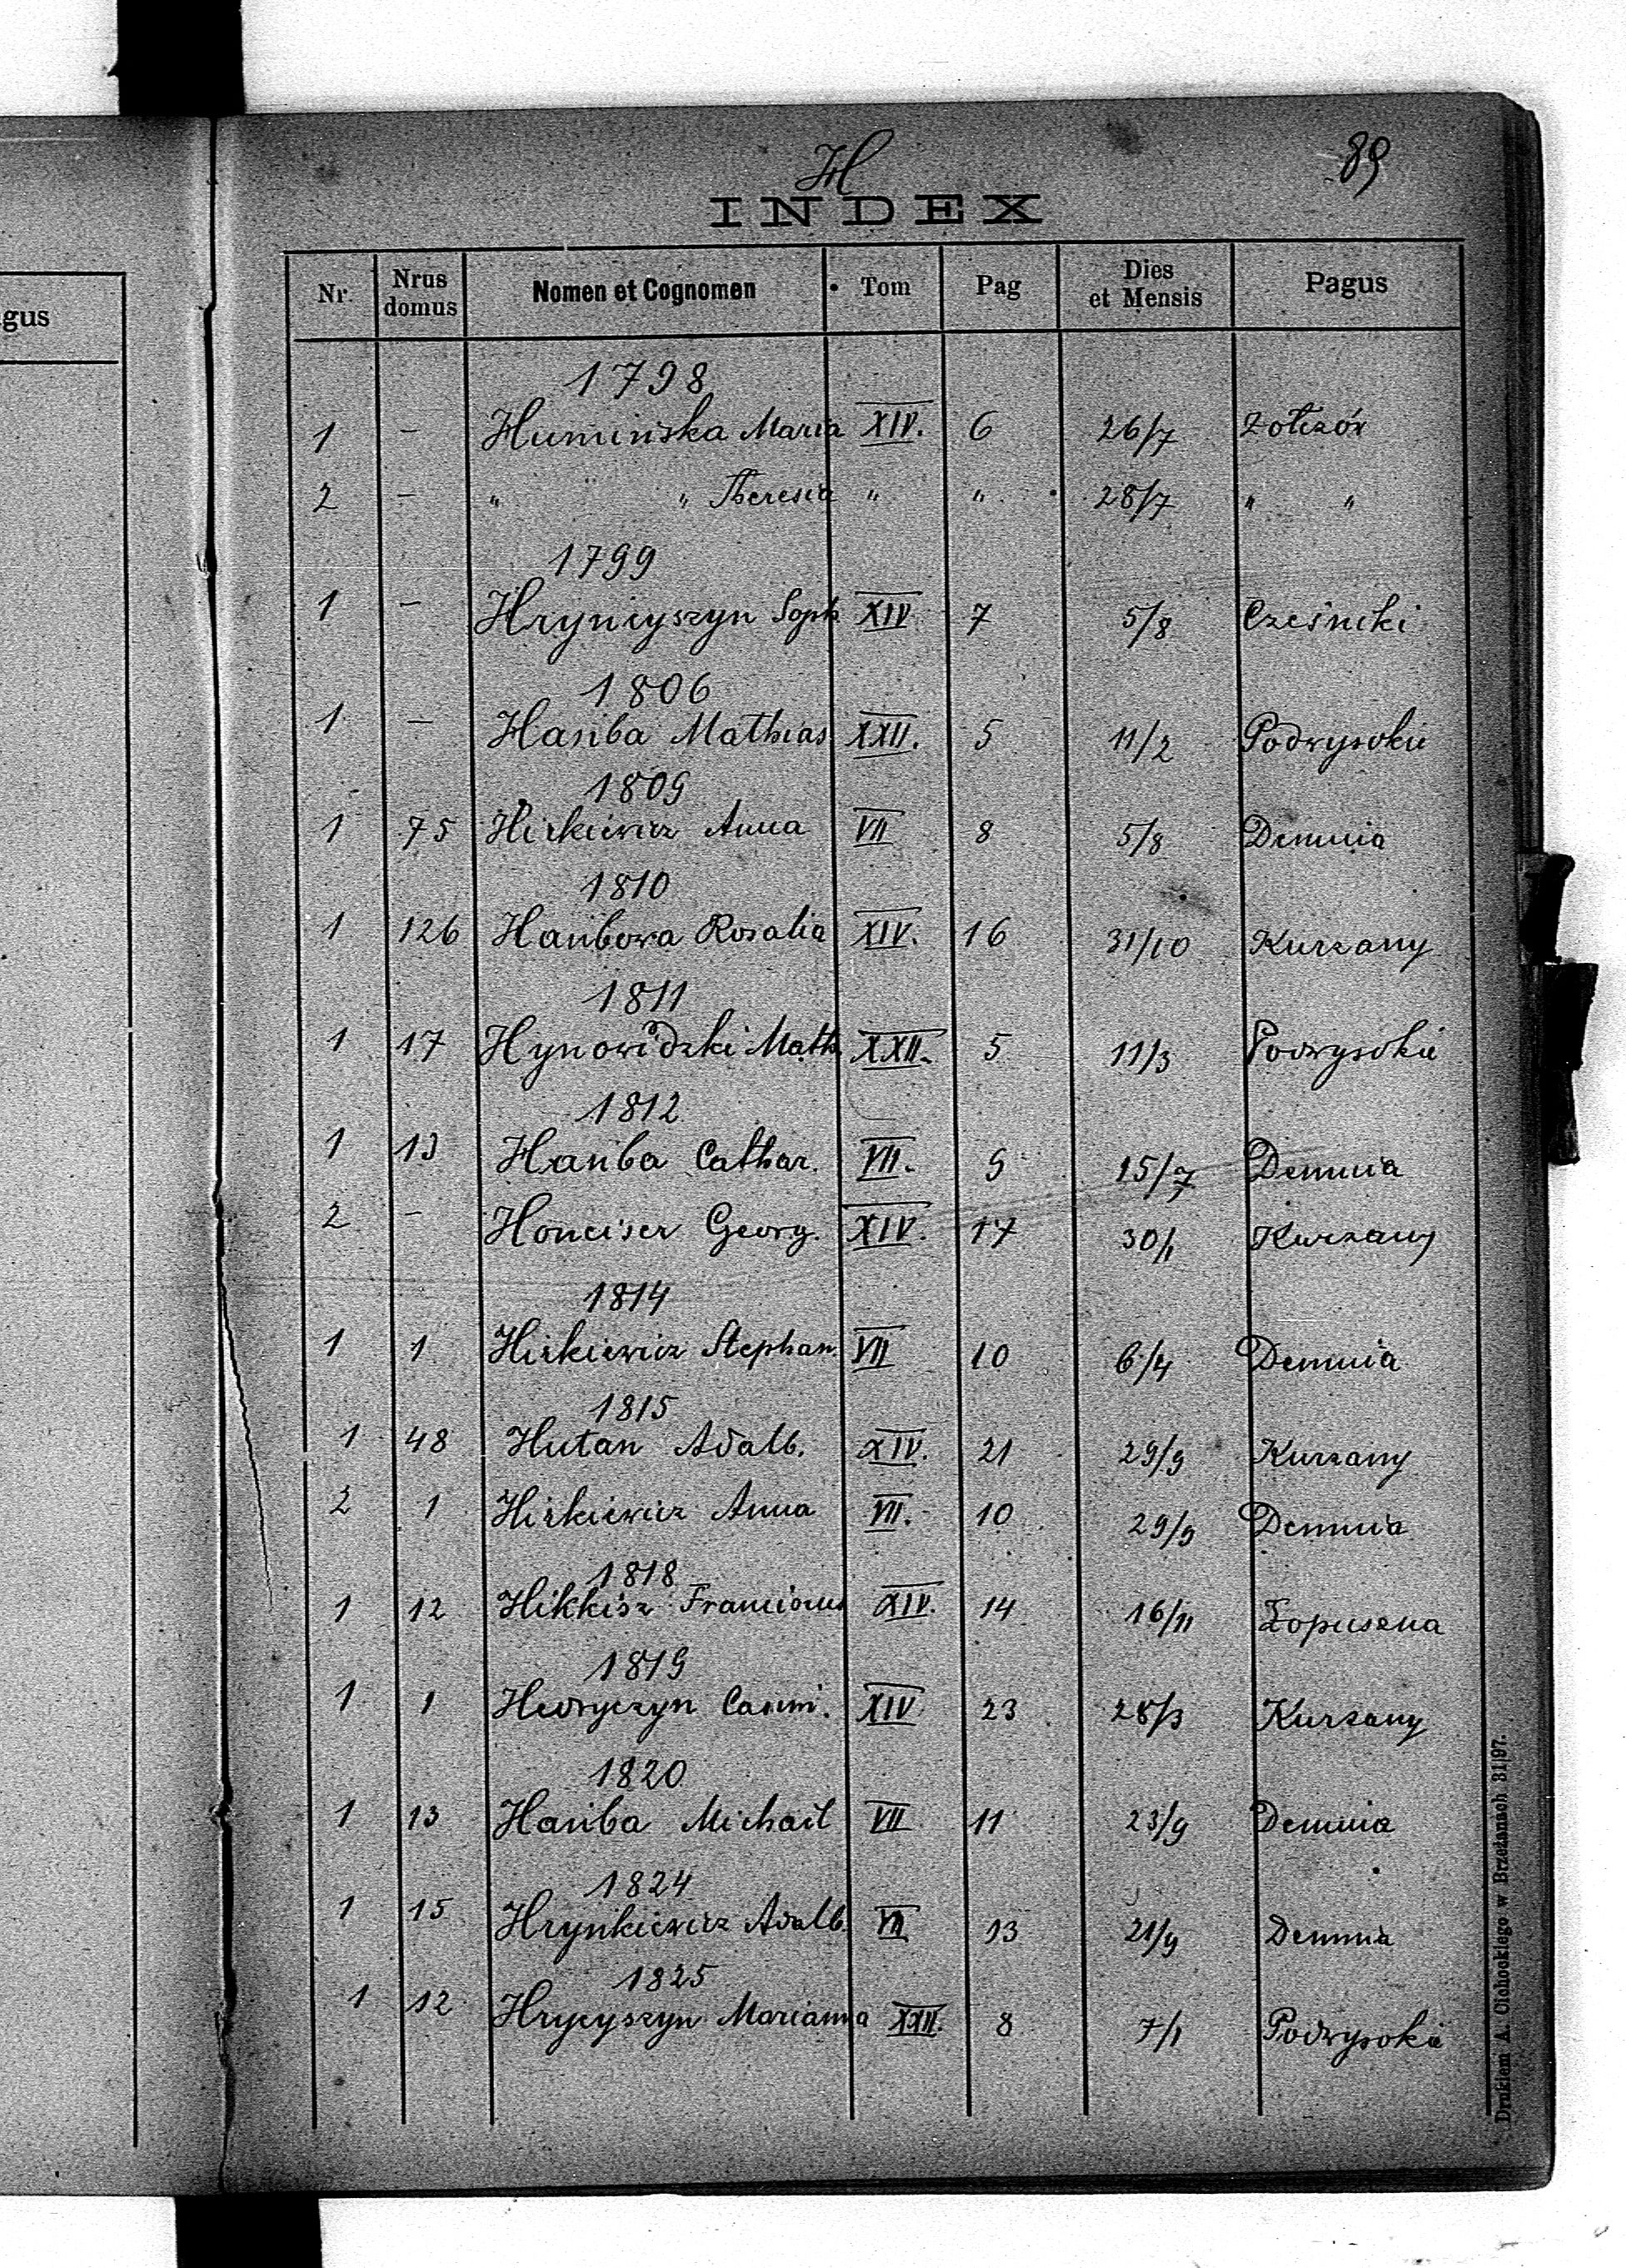 H
89
INDEX
gus
Nr. Nrus domus Nomen et Cognomen Tom Pag Dies et Mensis Pagus
1798
1 – Humińska Maria XIV. 6 26/7 Żołczów
2 – " " Theresia " " 28/7 " "
1799
1 – Hrynicyszyn Soph XIV 7 5/8 Cześniki
1806
1 – Hańba Mathias XXII. 5 11/2 Podwysokie
1809
1 75 Hirkiewicz Anna VII 8 5/8 Demnia
1810
1 126 Hańbowa Rosalia XIV. 16 31/10 Kurzany
1811
1 17 Hynowidzki Math XXII. 5 11/3 Podwysokie
1812
1 13 Hańba Cathar. VII. 9 15/7 Demnia
2 – Honciser Georg. XIV. 17 30/1 Kurzany
1814
1 1 Hirkiewicz Stephan. VII 10 6/4 Demnia
1815
1 48 Hutan Adalb. XIV. 21 29/9 Kurzany
2 1 Hirkiewicz Anna VII. 10 29/9 Demnia
1818
1 12 Hikkisz Franciscus XIV. 14 16/11 Łopuszna
1819
1 1 XIV 23 28/3 Kurzany
1820
1 13 Hańba Michael VII 11 23/9 Demnia
1824
1 15 Hrynkiewicz Adalb. VII 13 21/9 Demnia
1825
1 12 Hrycyszyn Marianna XXII. 8 7/1 Podwysokie
Drukiem A. Cichockiego w Brzeżanach 31|97.